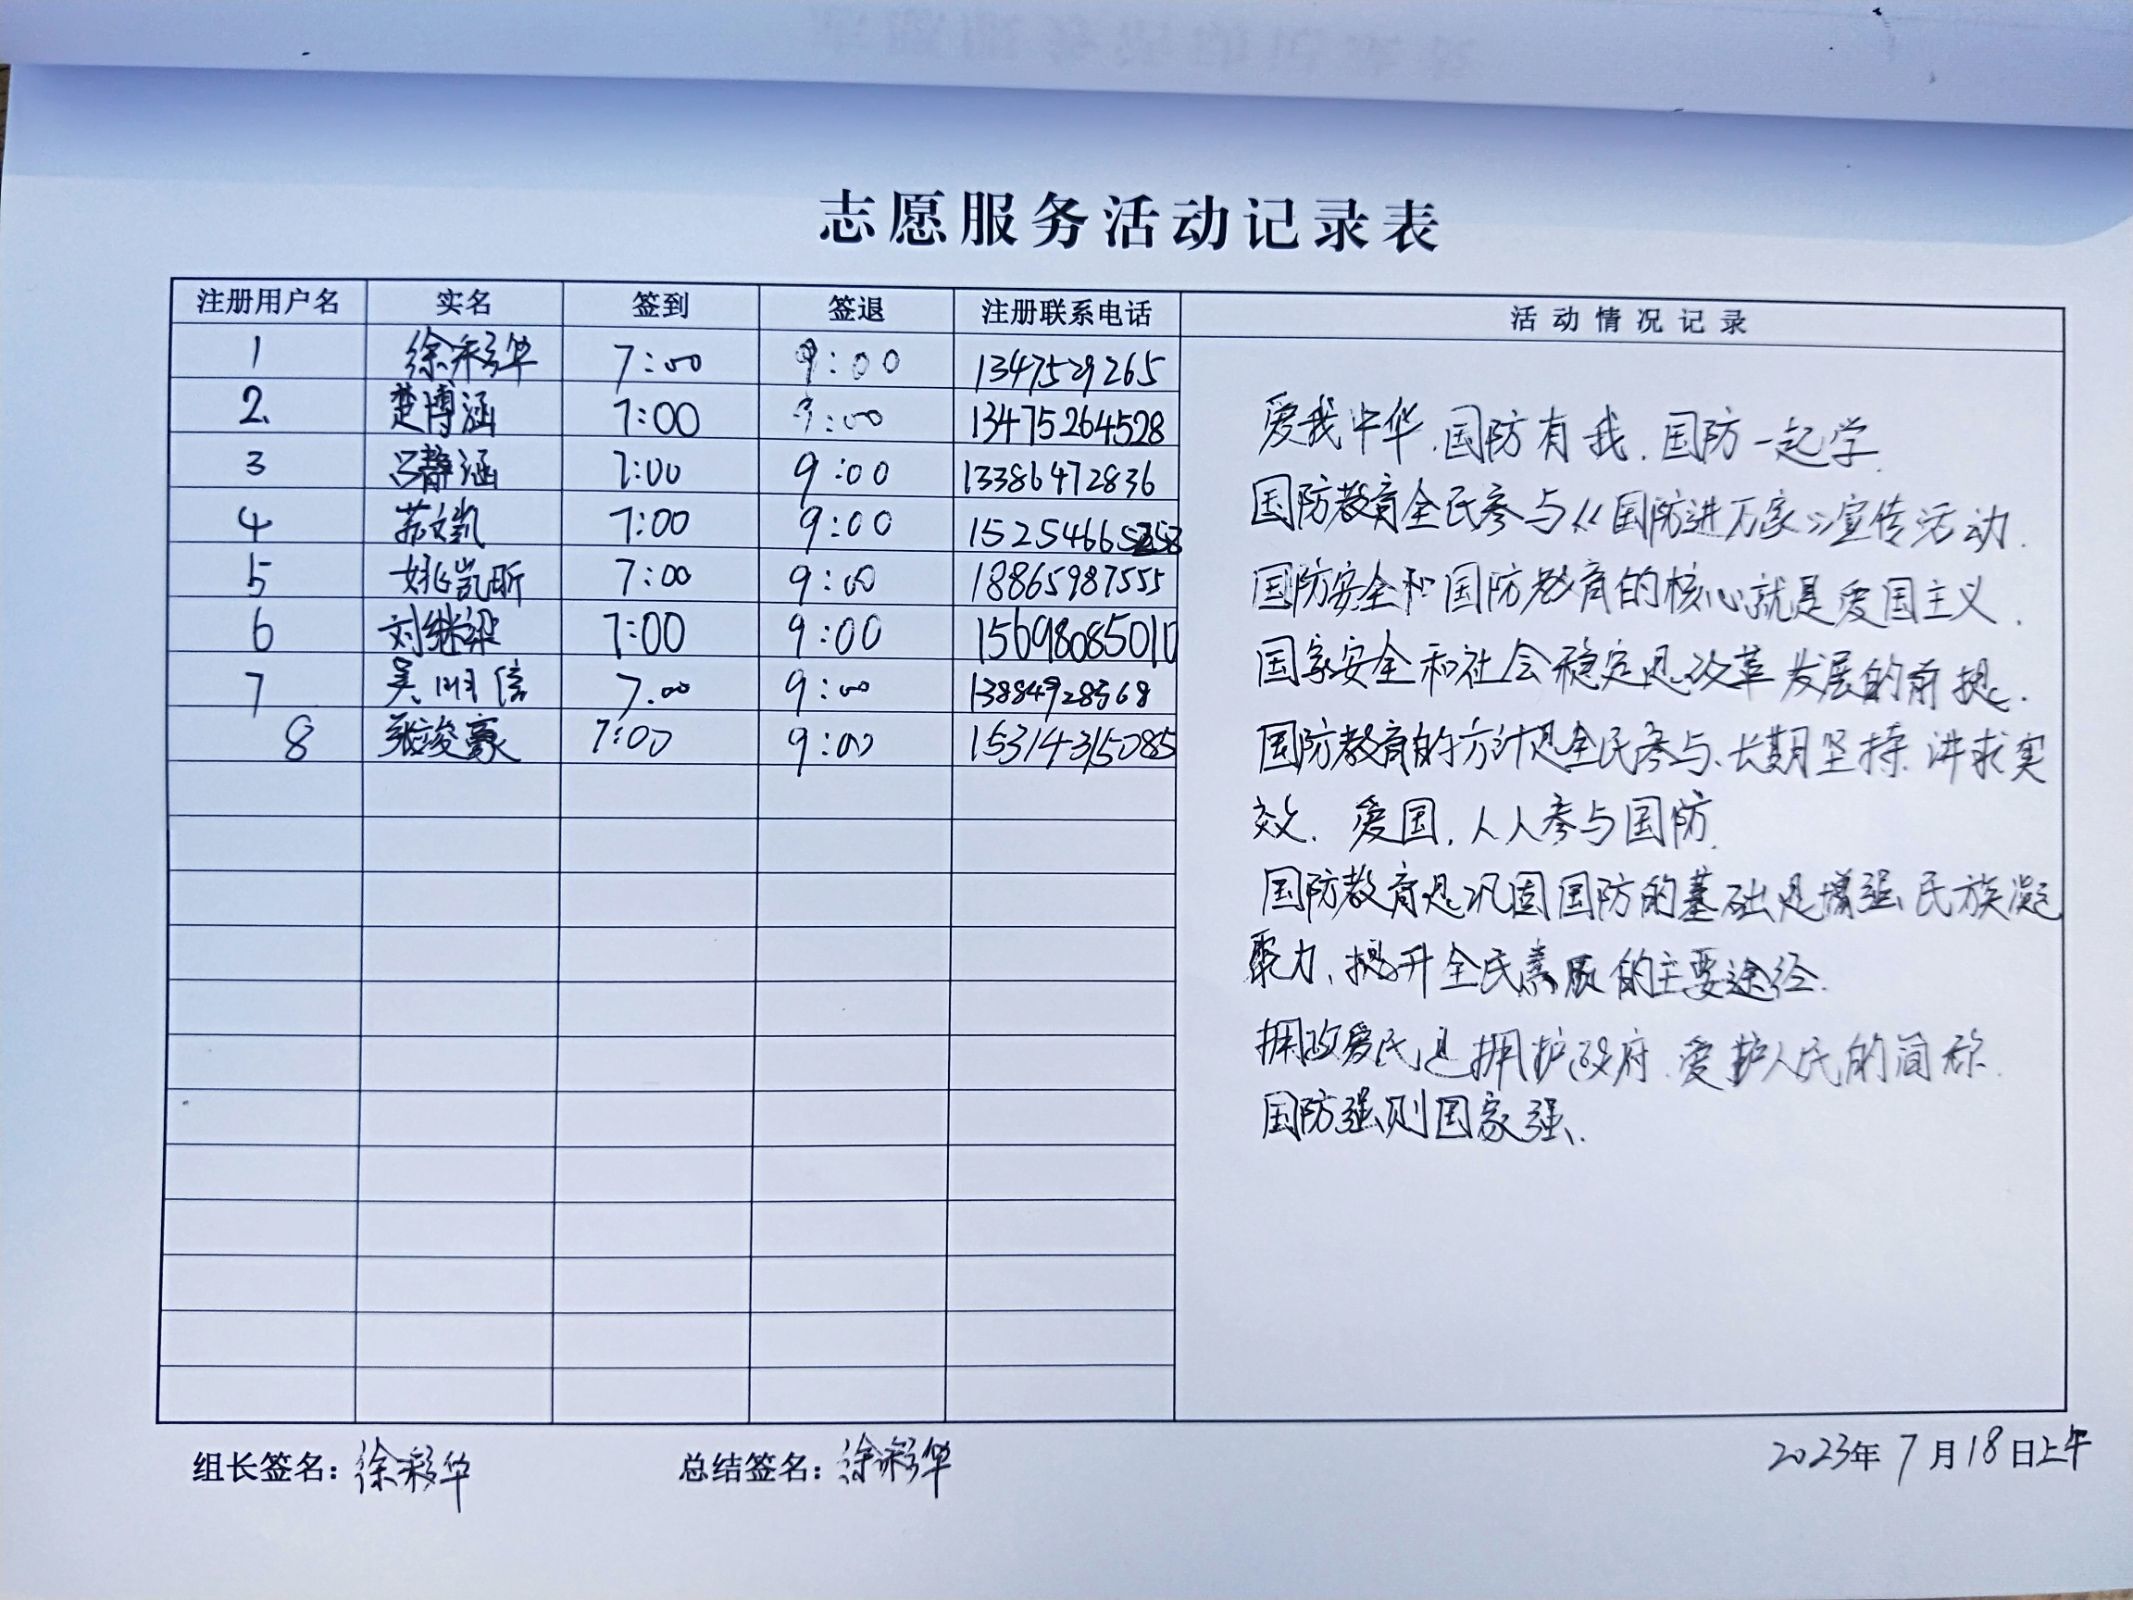 志愿服务活动记录表
注册用户名 实名 签到 签退 注册联系电话 活动情况记录
1 徐彩华 7:00 9:00 1347529265
2. 楚博涵 7:00 9:00 13475264528
3 吕静涵 7:00 9:00 13386472836
4 苏文凯 7:00 9:00
5 姚凯昕 7:00 9:00 18865987555
6 刘继梁 7:00 9:00 15698085010
7 吴 信 7:00 9:00 13884928568
8 张峻豪 7:00 9:00 15314315085
爱我中华.国防有我.国防一起学.
国防教育全民参与《国防进万家》宣传活动.
国防安全和国防教育的核心就是爱国主义.
国家安全和社会稳定是改革发展的前提.
国防教育的方针是全民参与、长期坚持、讲求实
效.爱国,人人参与国防.
国防教育是巩固国防的基础是增强民族凝
聚力、提升全民素质的主要途径.
拥政爱民是拥护政府.爱护人民的简称.
国防强则国家强.
组长签名:徐彩华 总结签名:徐彩华 2023年7月18日上午